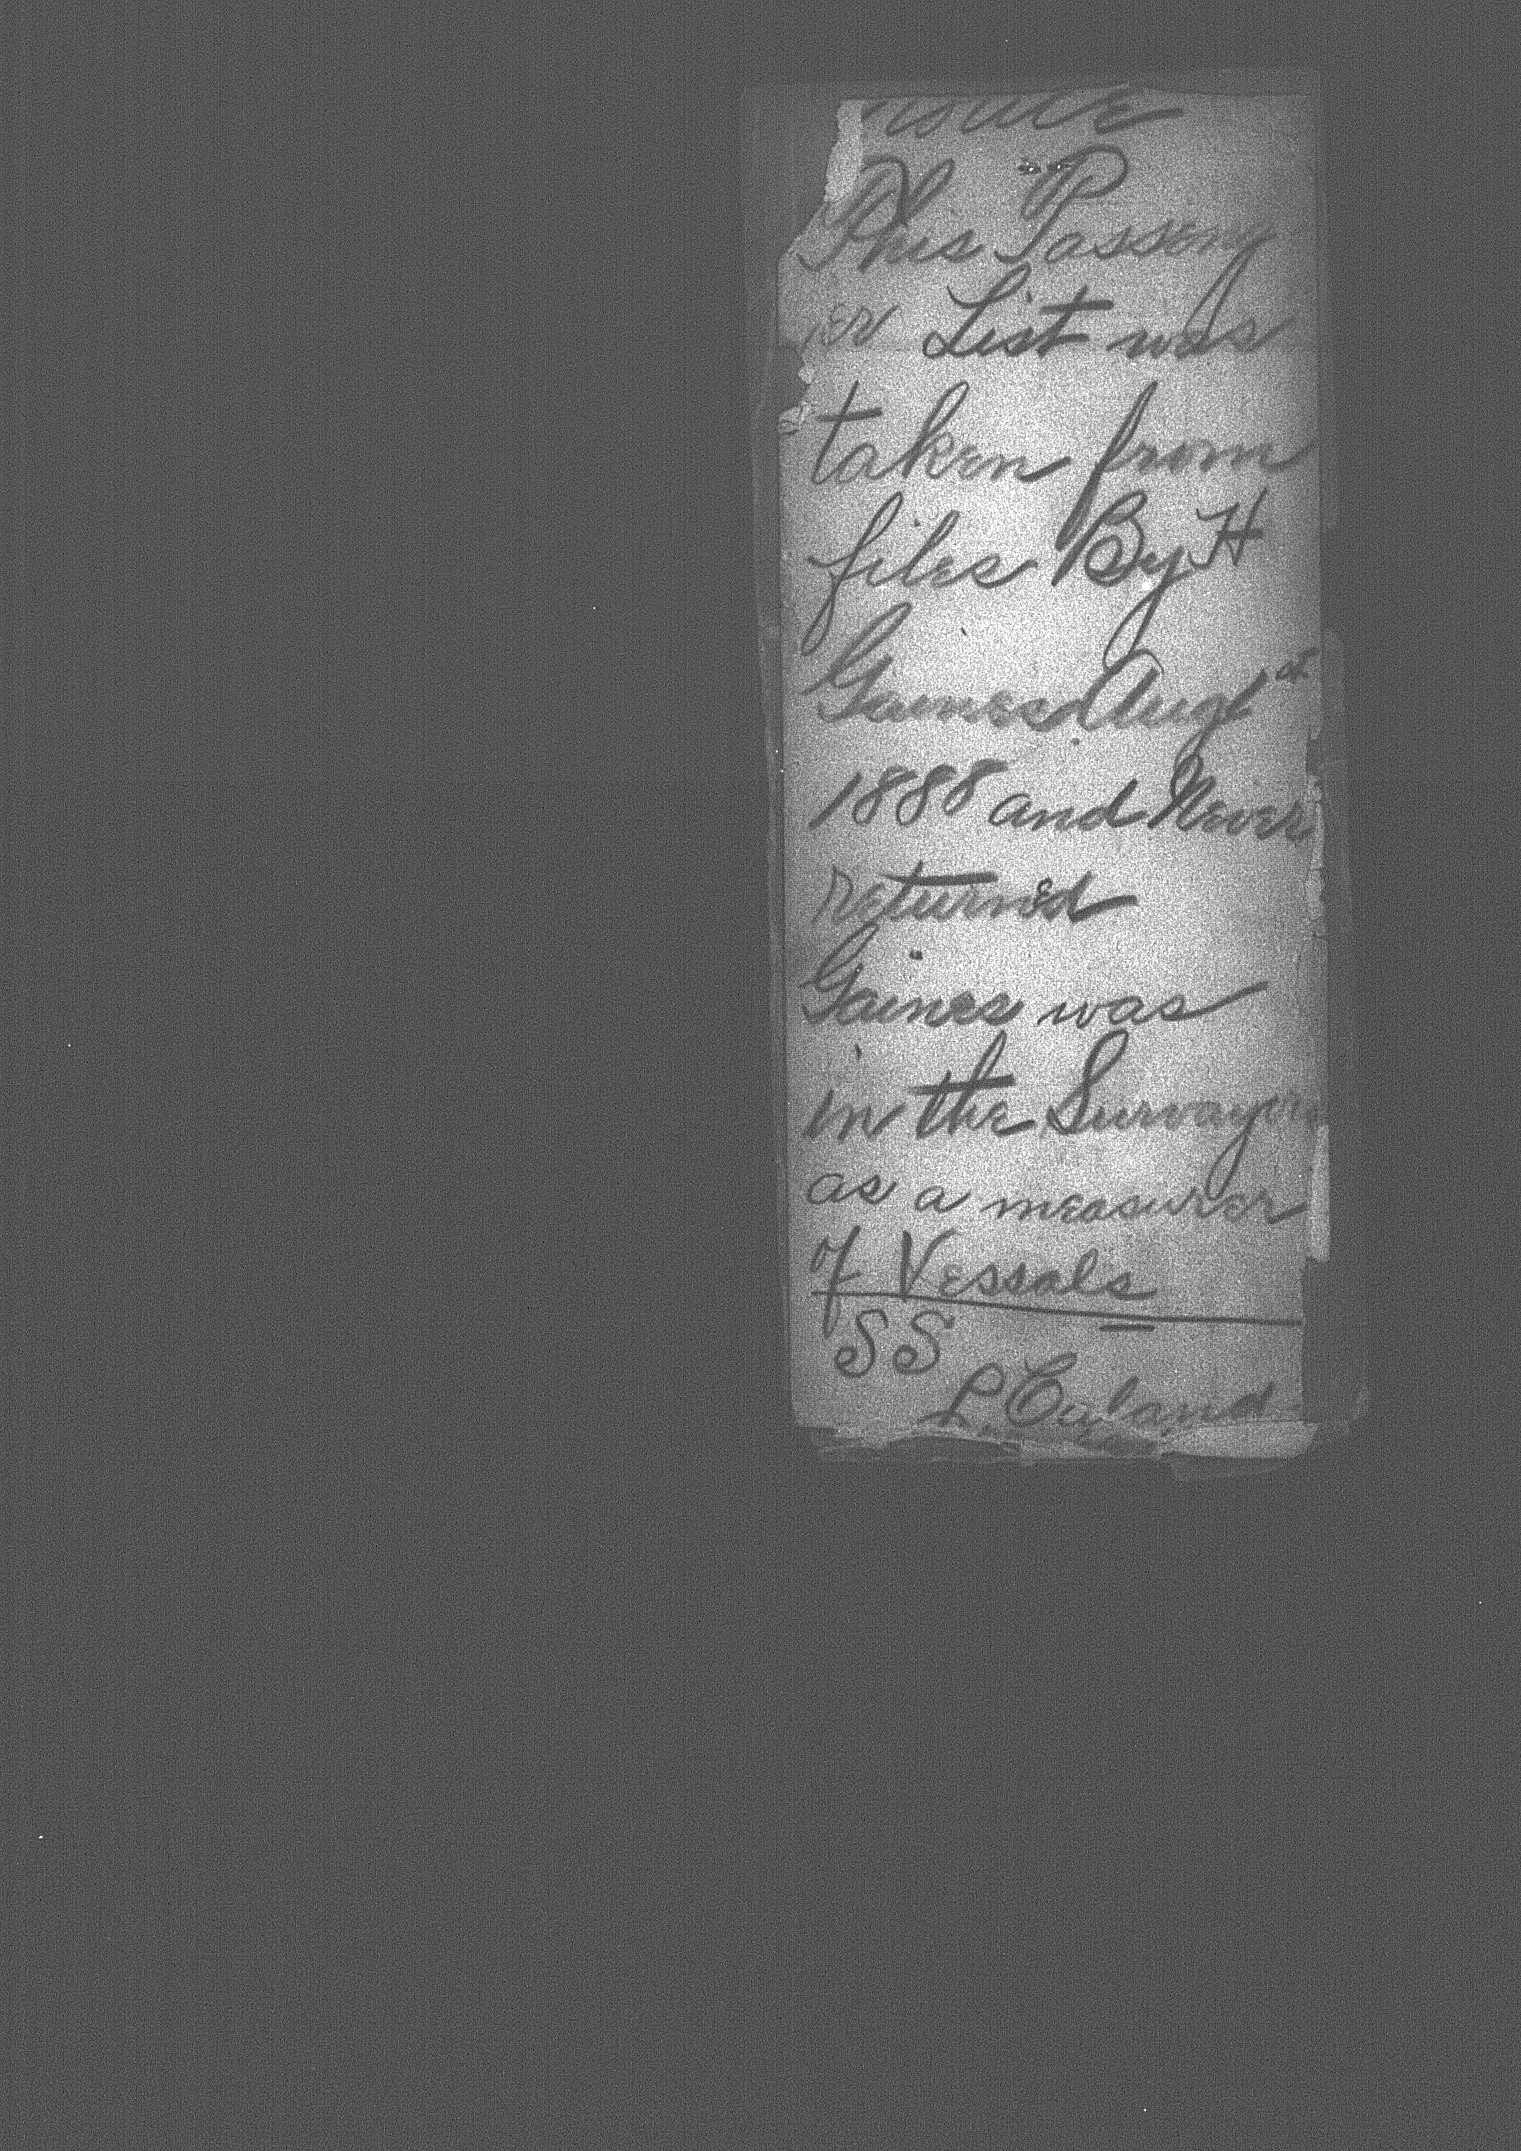 This Passeng
er List was
taken from
files By H
Gaines Aug 1st
1888 and Never
returned
Gaines was
in the Survayors
as a measurer
of Vessals
SS
L.